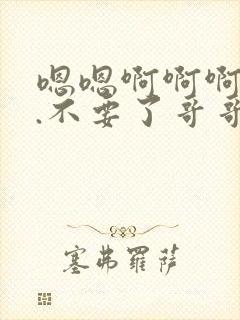 嗯嗯啊啊啊
.不要了哥哥
塞弗罗萨